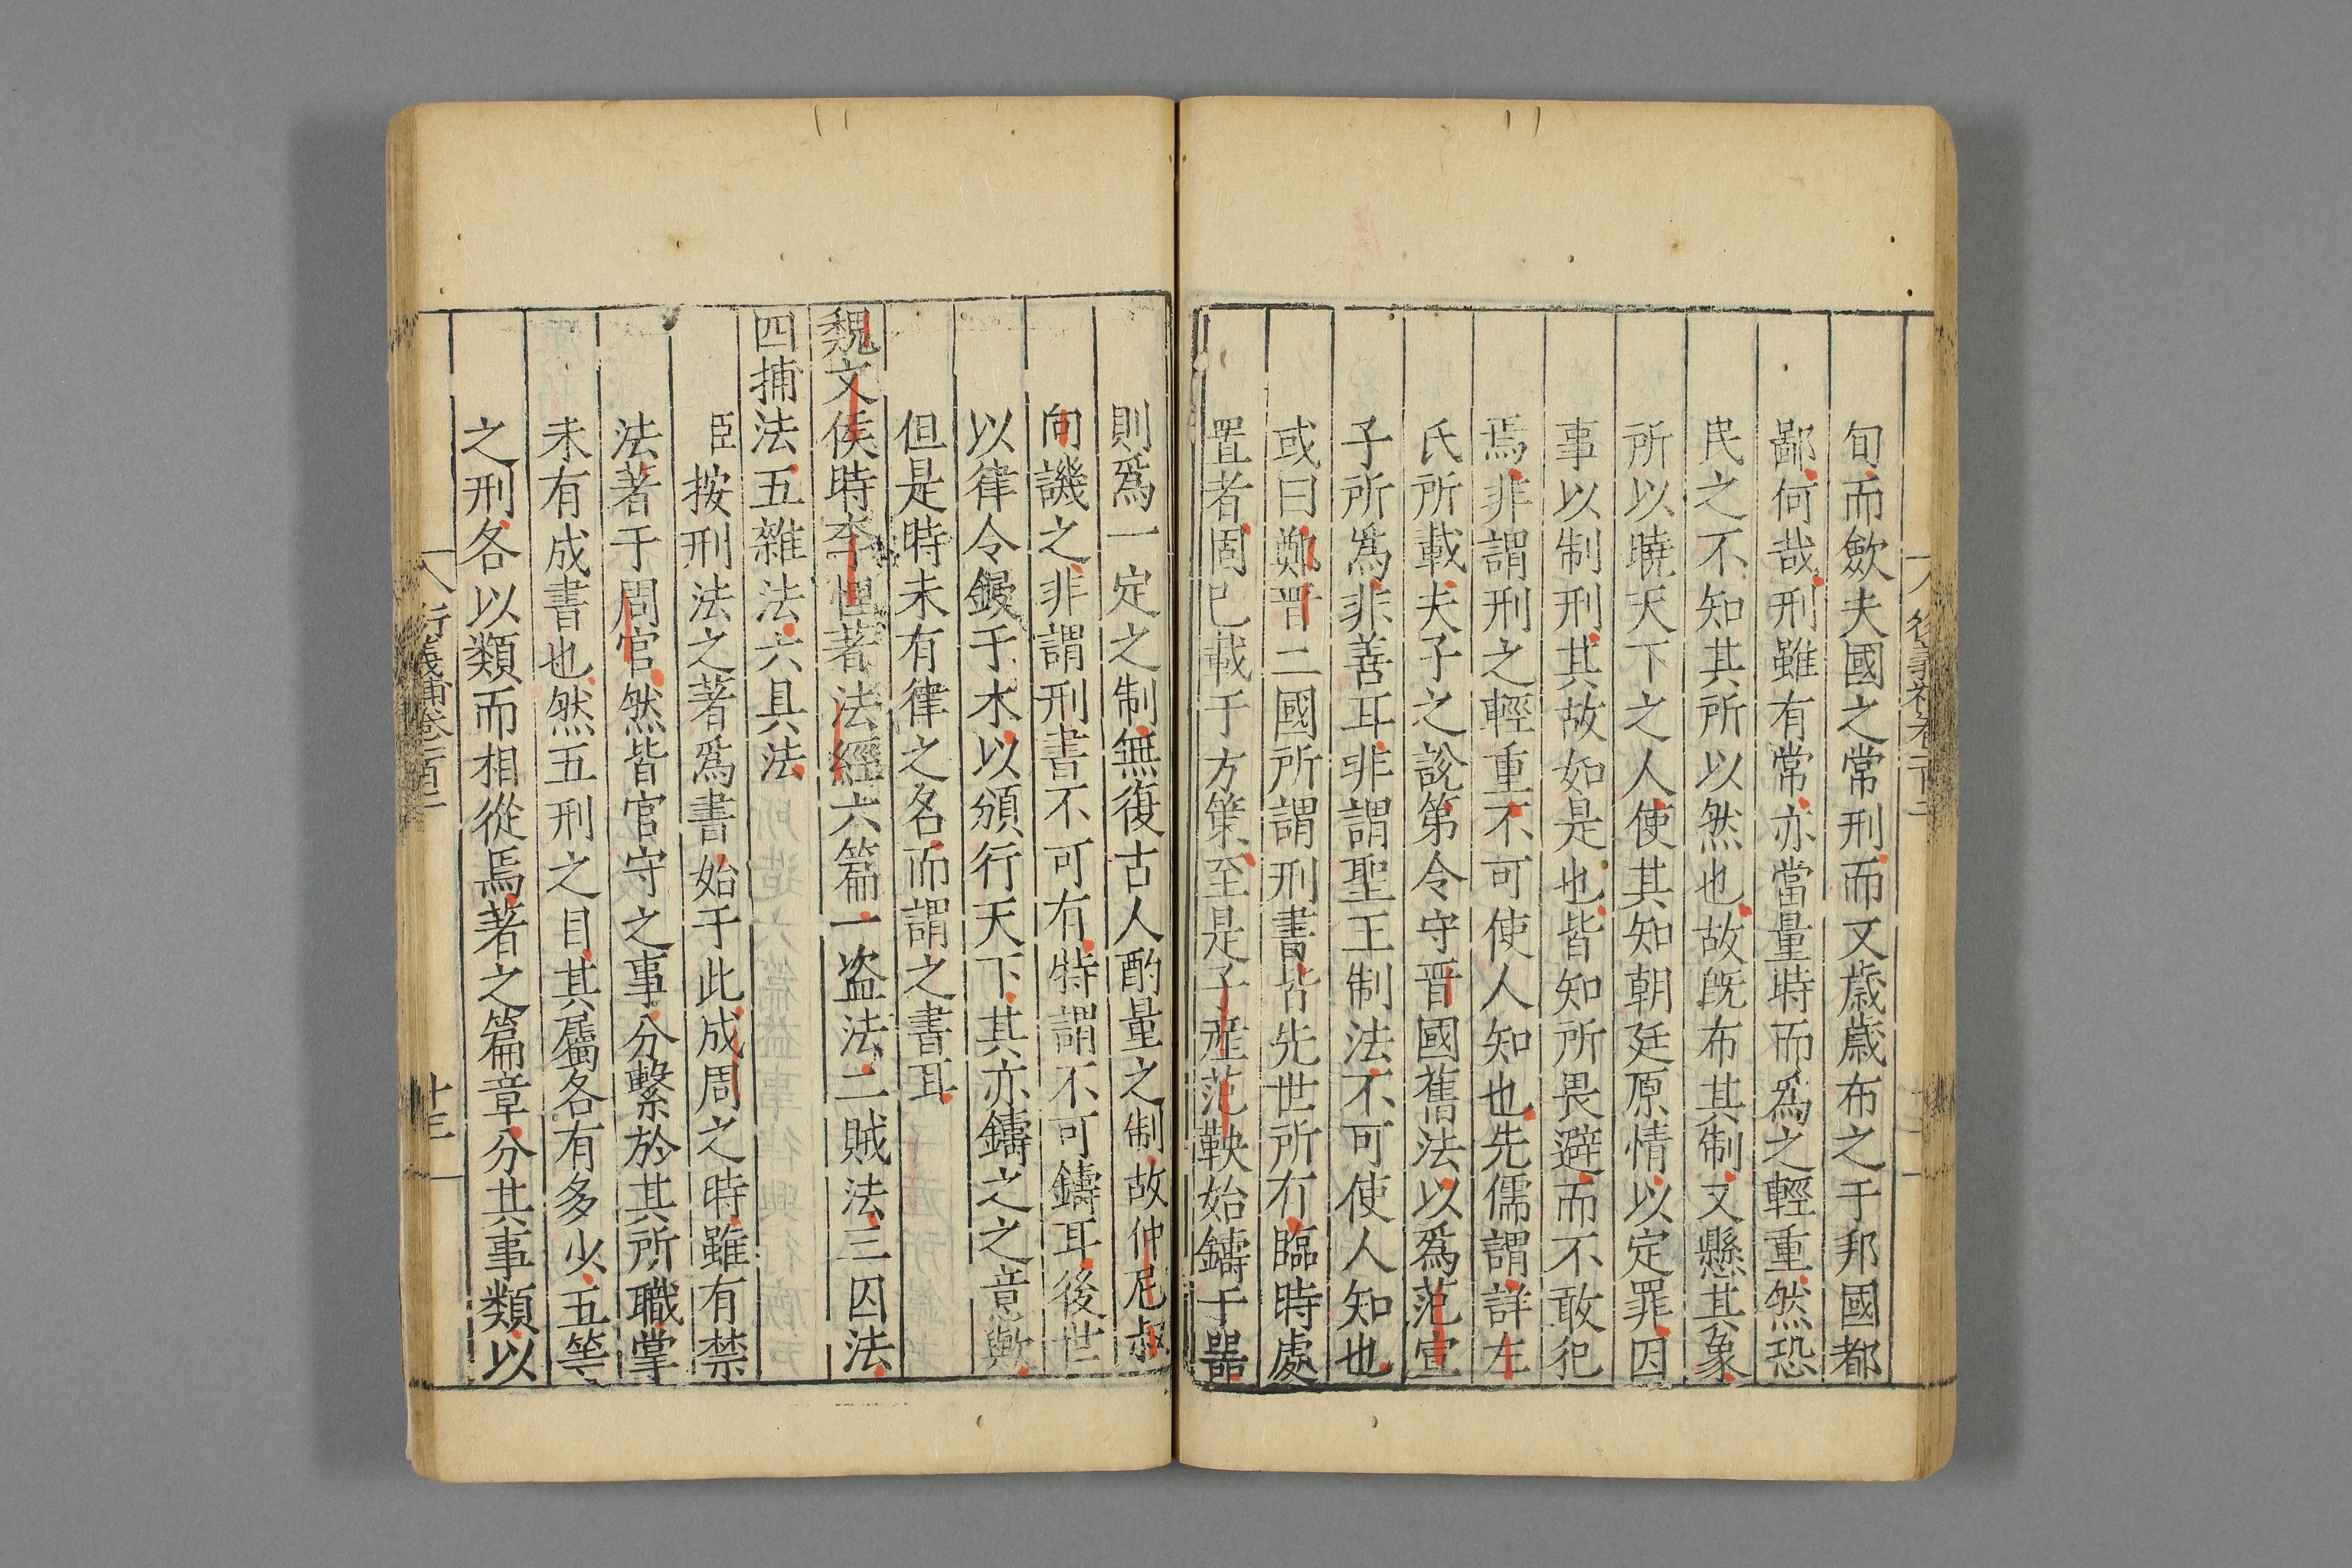 旬而斂夫國之常刑而又歲歲布之于邦國都
鄙何哉刑雖有常亦當量時而爲之輕重然恐
民之不知其所以然也故既布其制又懸其象
所以曉天下之人使其知朝廷原情以定罪因
事以制刑其故如是也皆知所畏避而不敢犯
焉非謂刑之輕重不可使人知也先儒謂詳左
氏所載夫子之說第令守晉國舊法以爲范宣
子所爲非善耳非謂聖王制法不可使人知也
或曰鄭晉二國所謂刑書皆先世所有臨時處
置者固已載于方策至是子産范鞅始鑄于器
則爲一定之制無復古人酌量之制故仲尼叔
向譏之非謂刑書不可有特謂不可鑄耳後世
以律令鋟于木以頒行天下其亦鑄之之意歟
但是時未有律之名而謂之書耳
魏文侯時李悝著法經六篇一盗法二賊法三囚法
四捕法五雜法六具法
臣按刑法之著爲書始于此成周之時雖有禁
法著于周官然皆官守之事分繫於其所職掌
未有成書也然五刑之目其屬各有多少五等
之刑各以類而相從焉著之篇章分其事類以
衍義補卷一百二
十三